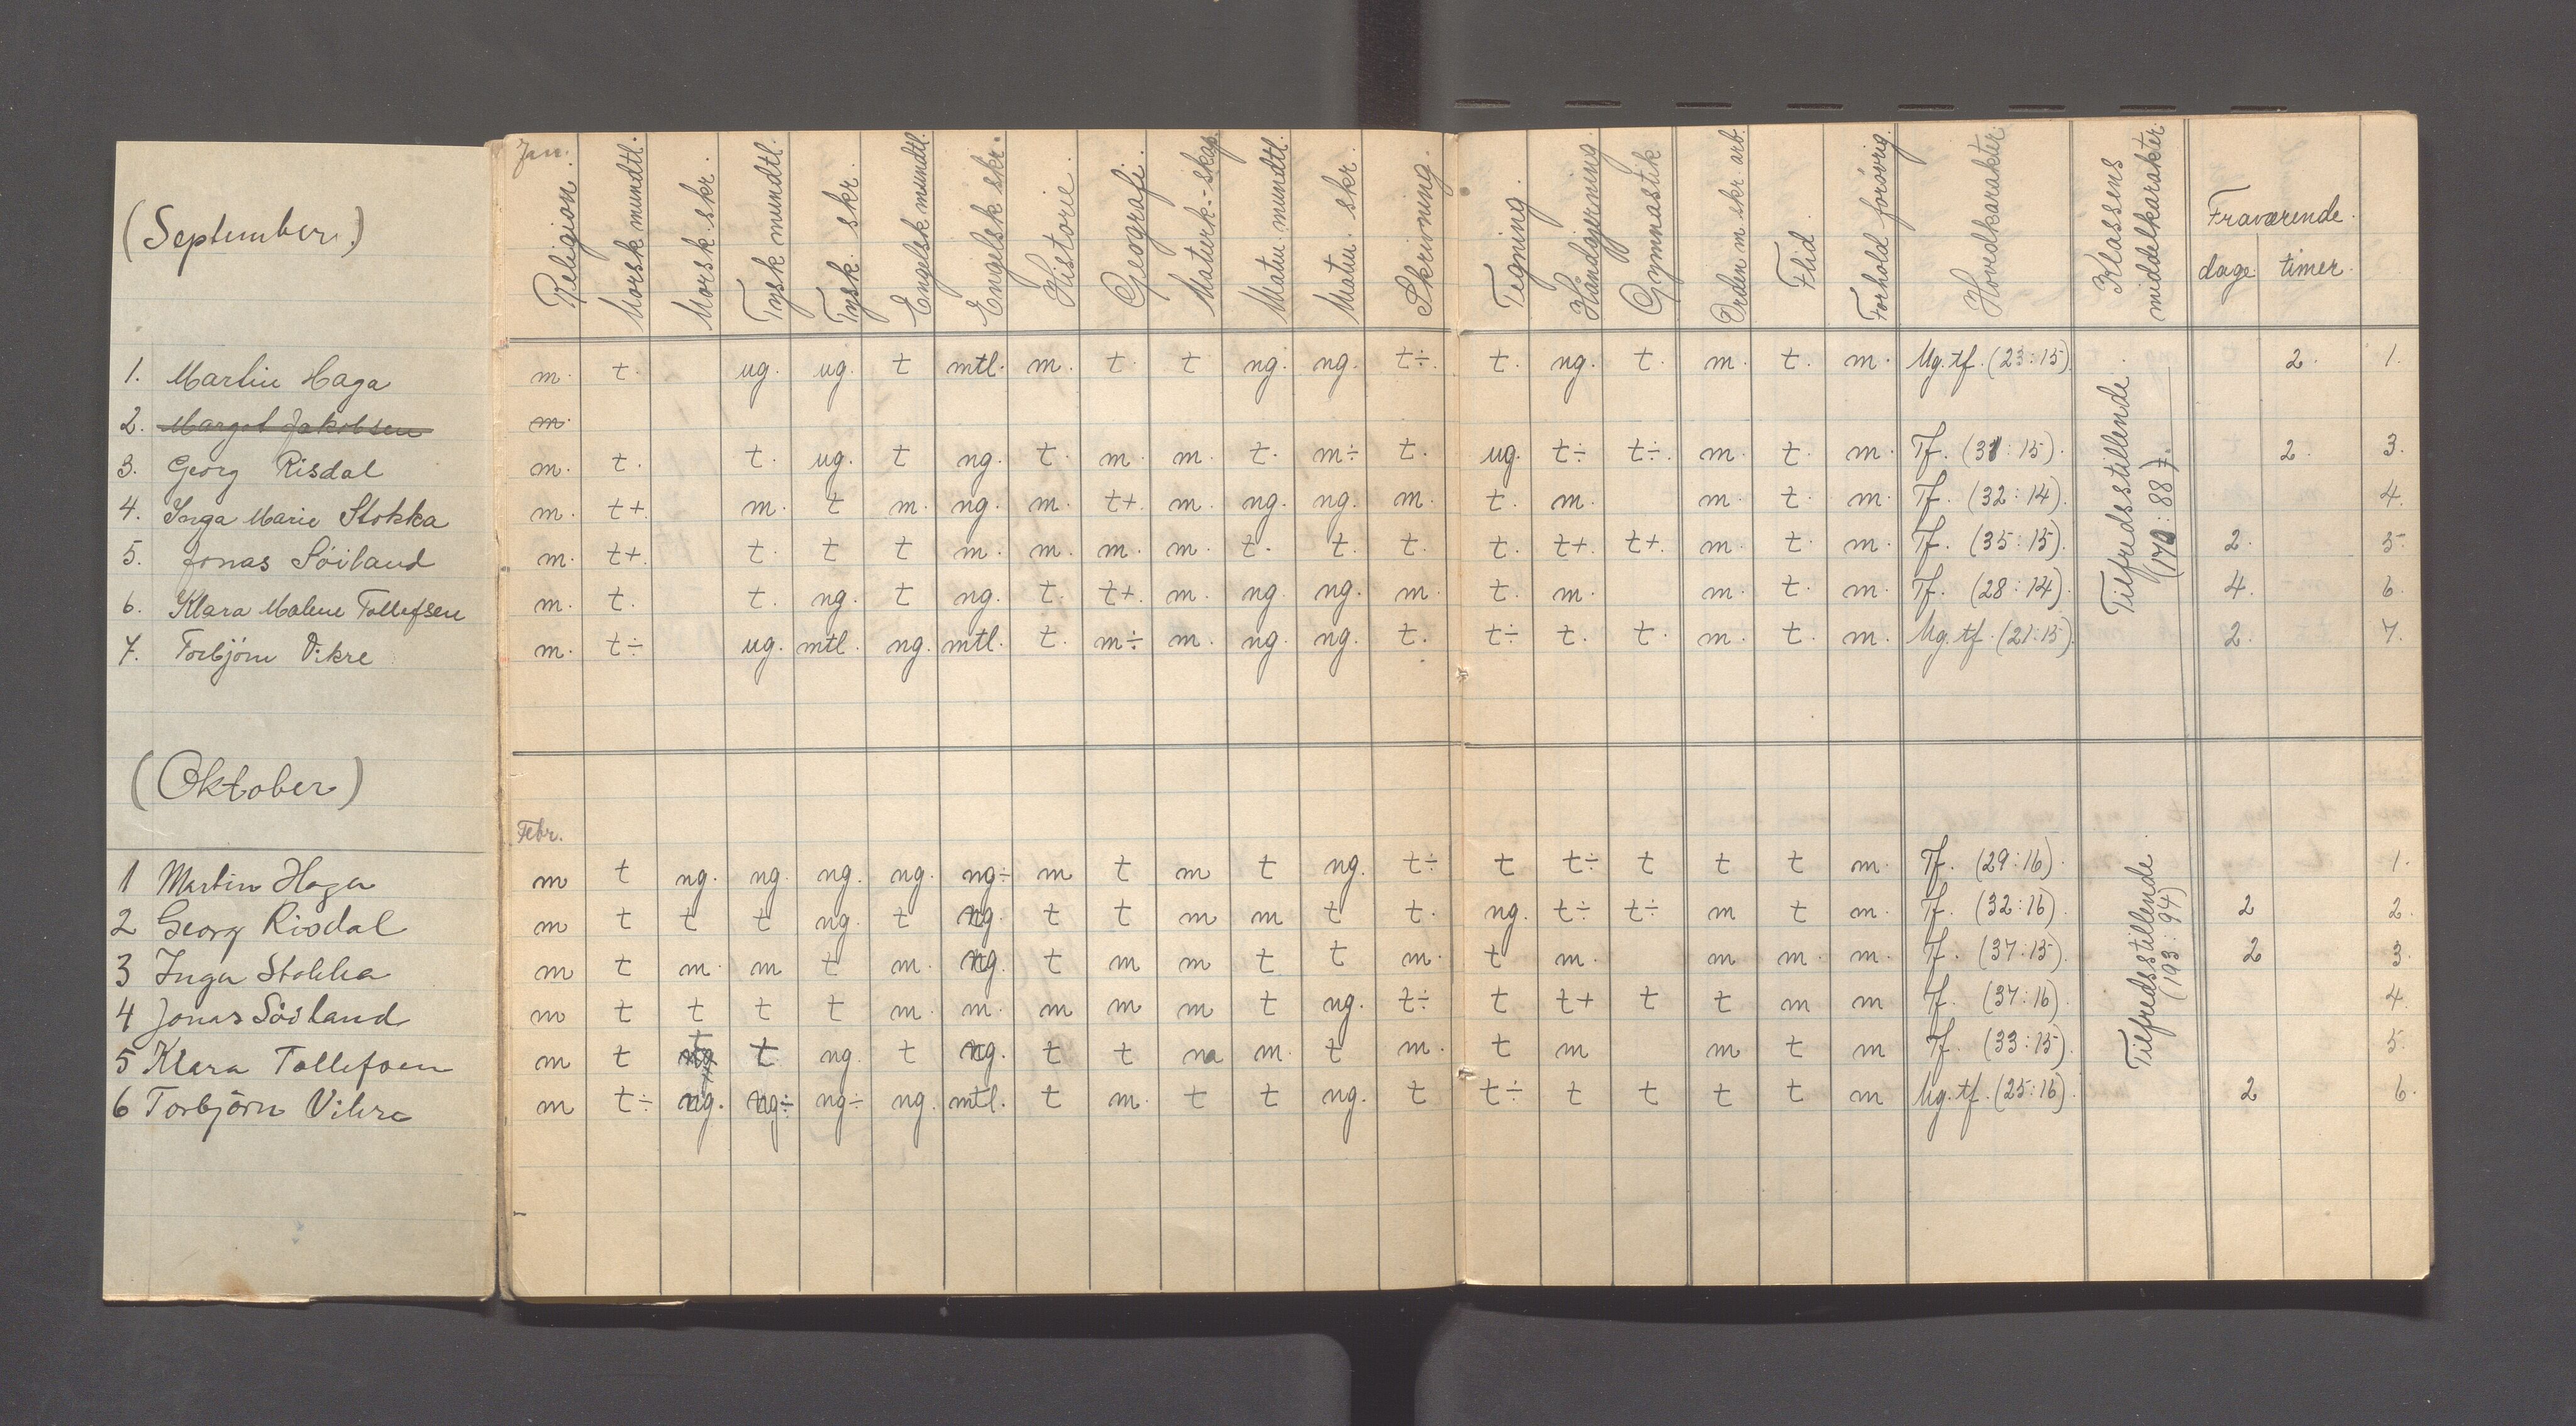 (September.)
Jan.
Religion.
Norsk mundtl.
Norsk. skr.
Tysk mundtl.
Tysk skr.
Engelsk mundtl.
Engelsk skr.
Historie.
Geografi.
Naturk-skap.
Matm. mundtl.
Matm. skr.
Skrivning.
Tegning.
Håndgjerning.
Gymnastik
Orden m skr. arb.
Flid.
Forhold forøvrig.
Hovedkarakter.
Klassens middelkarakter.
Fraværende.
dage timer.
1. Martin Haga m. t. ug. ug. t mtl. m. t. t ng. ng. t÷. t. ng. t. m. t. m. Ng. tf. (23:15). 2. 1.
2. Margot Jakobsen m.
3. Georg Risdal m. t. t. ug. t ng. t. m. m. t. m÷ t. ug. t÷ t÷. m. t. m. Tf. (31:15). 2. 3.
4. Inga Marie Stokka m. t+. m. t m. ng. m. t+. m. ng. ng. m. t. m. m. t. m. Tf. (32:14). 4.
5. Jonas Söiland m. t+. t. t t m. m. m. m. t. t. t. t. t+. t+. m. t. m. Tf. (35:15). 2. 5.
6. Klara Malene Tollefsen m. t. t. ng. t ng. t. t+. m. ng. ng. m. t. m. m. t. m. Tf. (28:14). 4. 6.
7. Torbjörn Vikre m. t÷ ug. mtl. ng. mtl. t. m÷ m. ng. ng. t. t÷ t. t. m. t. m. Ng. tf. (21:15). 2. 7.
Tilfredsstillende.
(170:88).
(Oktober)
Febr.
1 Martin Haga m t ng. ng. ng. ng. ng÷ m t m t ng. t÷ t t÷ t t t m. Tf. (29:16). 1.
2 Georg Risdal m t t t ng. t ng. t t m m t t. ng. t÷ t÷ m t m. Tf. (32:16). 2 2.
3 Inga Stokka m t m. m t m. ng. t m m t t m. t m. m m. m. Tf. (37:15). 2 3.
4 Jonas Söiland m t t t t m. m. m m m t ng. t÷ t t+ t t m m Tf. (37:16). 4.
5 Klara Tollefsen m t t t ng. t ng. t t m m. t m. t m m t m Tf. (33:15). 5.
6 Torbjörn Vikre m t÷ ng. ng÷ ng÷ ng. mtl. t m. t t ng. t t÷ t t t t m Ng. tf. (25:16). 2 6.
Tilfredsstillende
(193:94)